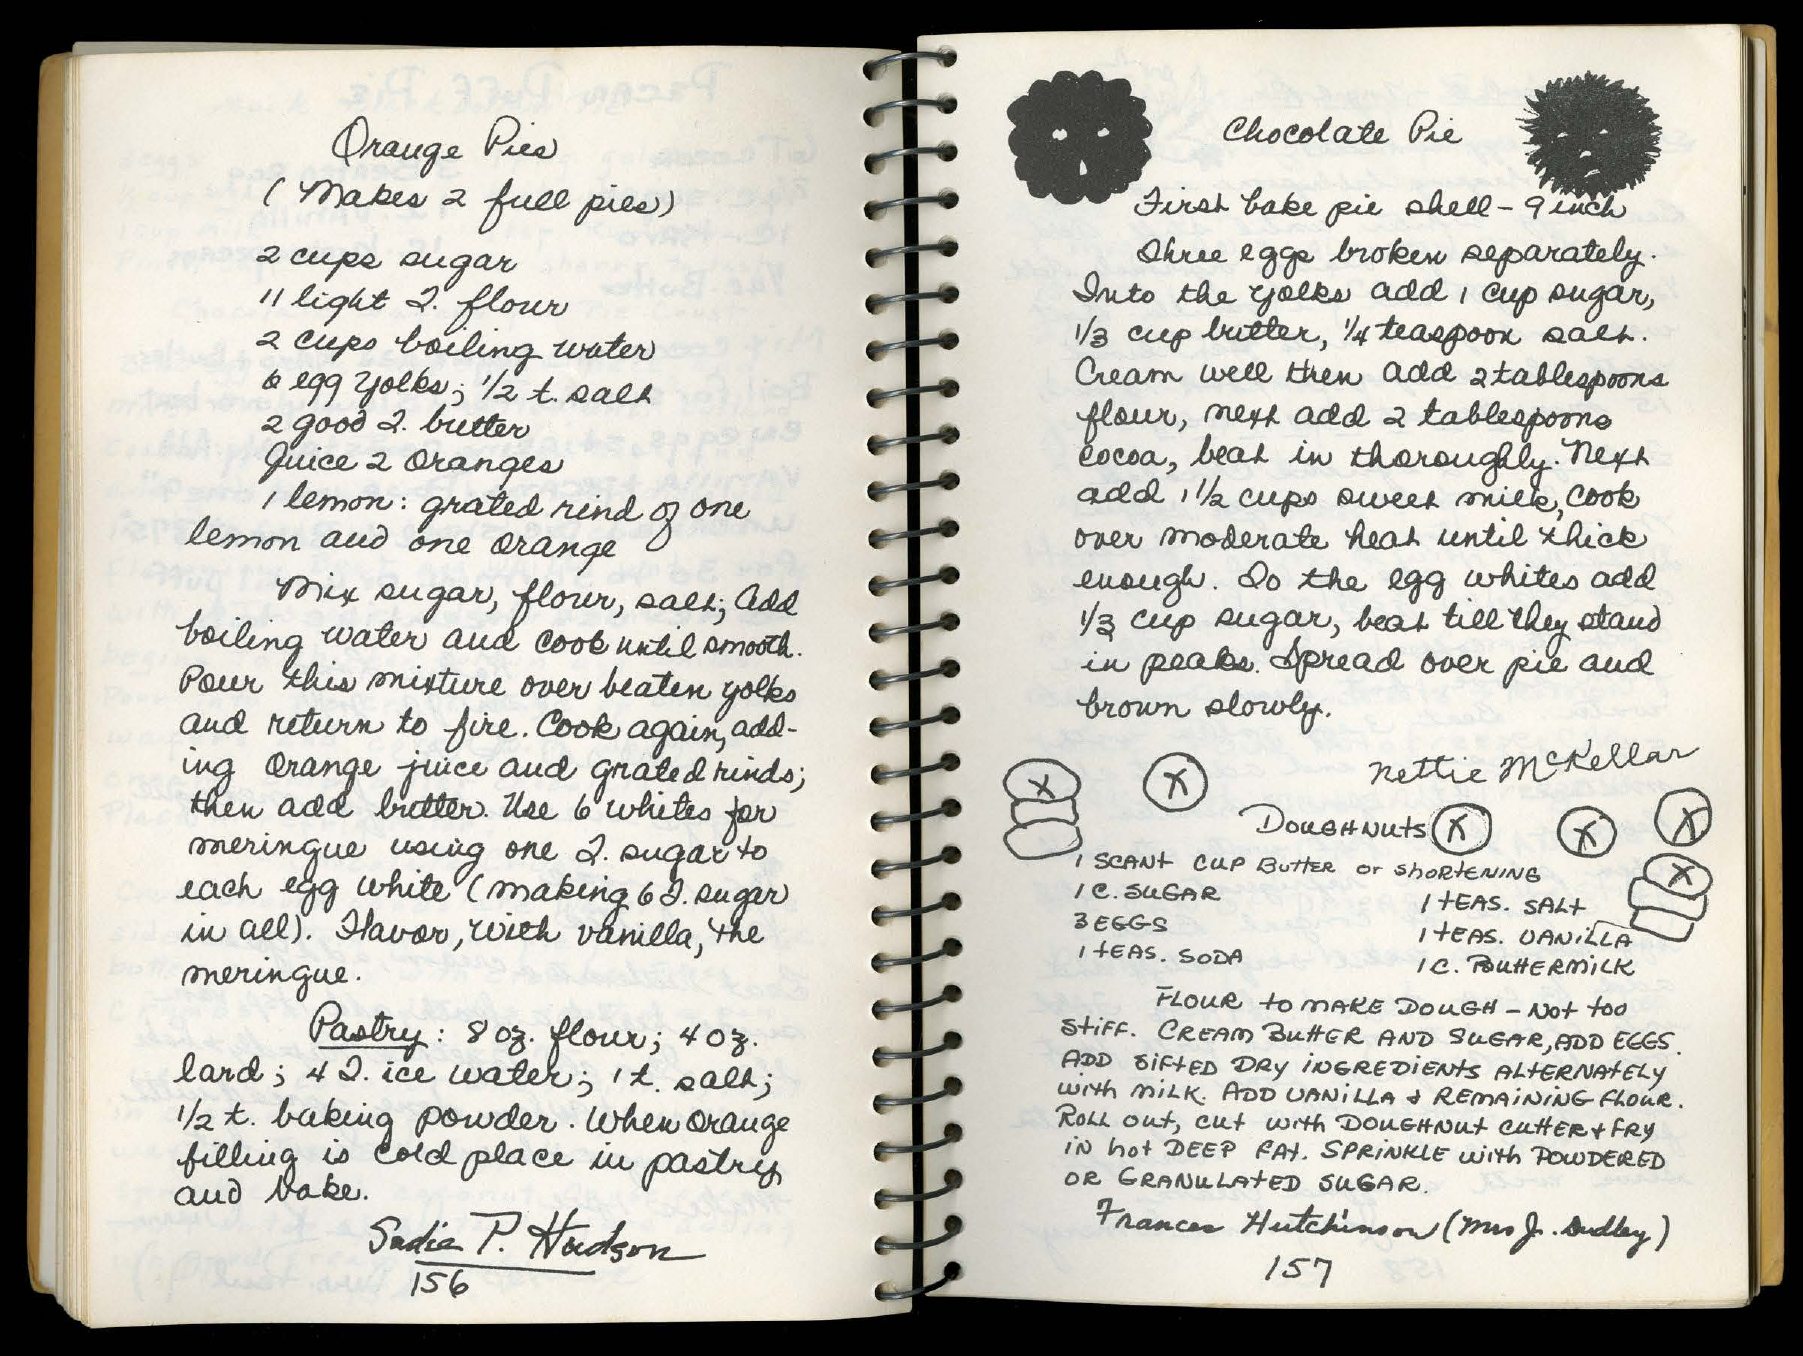 Orange Pies
(Makes 2 full pies)
2 cups sugar
11 light T. flour
2 cups boiling water
6 egg yolks; 1/2 t. salt
2 good T. butter
Juice 2 oranges
1 lemon: grated rind of one
lemon and one orange
Mix sugar, flour, salt; add
boiling water and cook until smooth.
Pour this mixture over beaten yolks
and return to fire. Cook again, add-
ing orange juice and grated rinds;
then add butter. Use 6 whites for
meringue using one T. sugar to
each egg white (making 6 T. sugar
in all). Flavor, with vanilla, the
meringue.
Pastry: 8 oz. flour; 4 oz.
lard; 4 T. ice water; 1 t. salt;
1/2 t. baking powder. When orange
filling is cold place in pastry
and bake.
Sadie P. Hudson
156
Chocolate Pie
First bake pie shell - 9 inch
Three eggs broken separately.
Into the yolks add 1 cup sugar,
1/3 cup butter, 1/4 teaspoon salt.
Cream well then add 2 tablespoons
flour, next add 2 tablespoons
cocoa, beat in thoroughly. Next
add 1 1/2 cups sweet milk, cook
over moderate heat until thick
enough. To the egg whites add
1/3 cup sugar, beat till they stand
in peaks. Spread over pie and
brown slowly.
Nettie McKellar
Doughnuts
1 scant cup butter or shortening
1 c. sugar
1 teas. salt
3 eggs
1 teas. vanilla
1 teas. soda
1 c. buttermilk
Flour to make dough - not too
stiff. Cream butter and sugar, add eggs.
Add sifted dry ingredients alternately
with milk. Add vanilla & remaining flour.
Roll out, cut with doughnut cutter & fry
in hot deep fat. Sprinkle with powdered
or granulated sugar.
Frances Hutchinson (Mrs J. Dudley)
157